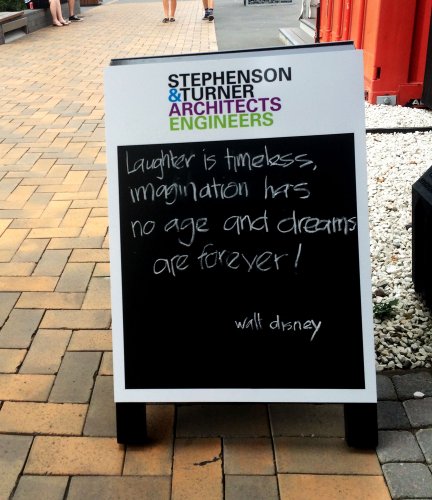 STEPHENSON
&TURNER
ARCHITECTS
ENGINEERS
Laughter is timeless,
imagination has
no age and dreams
are forever!
walt disney